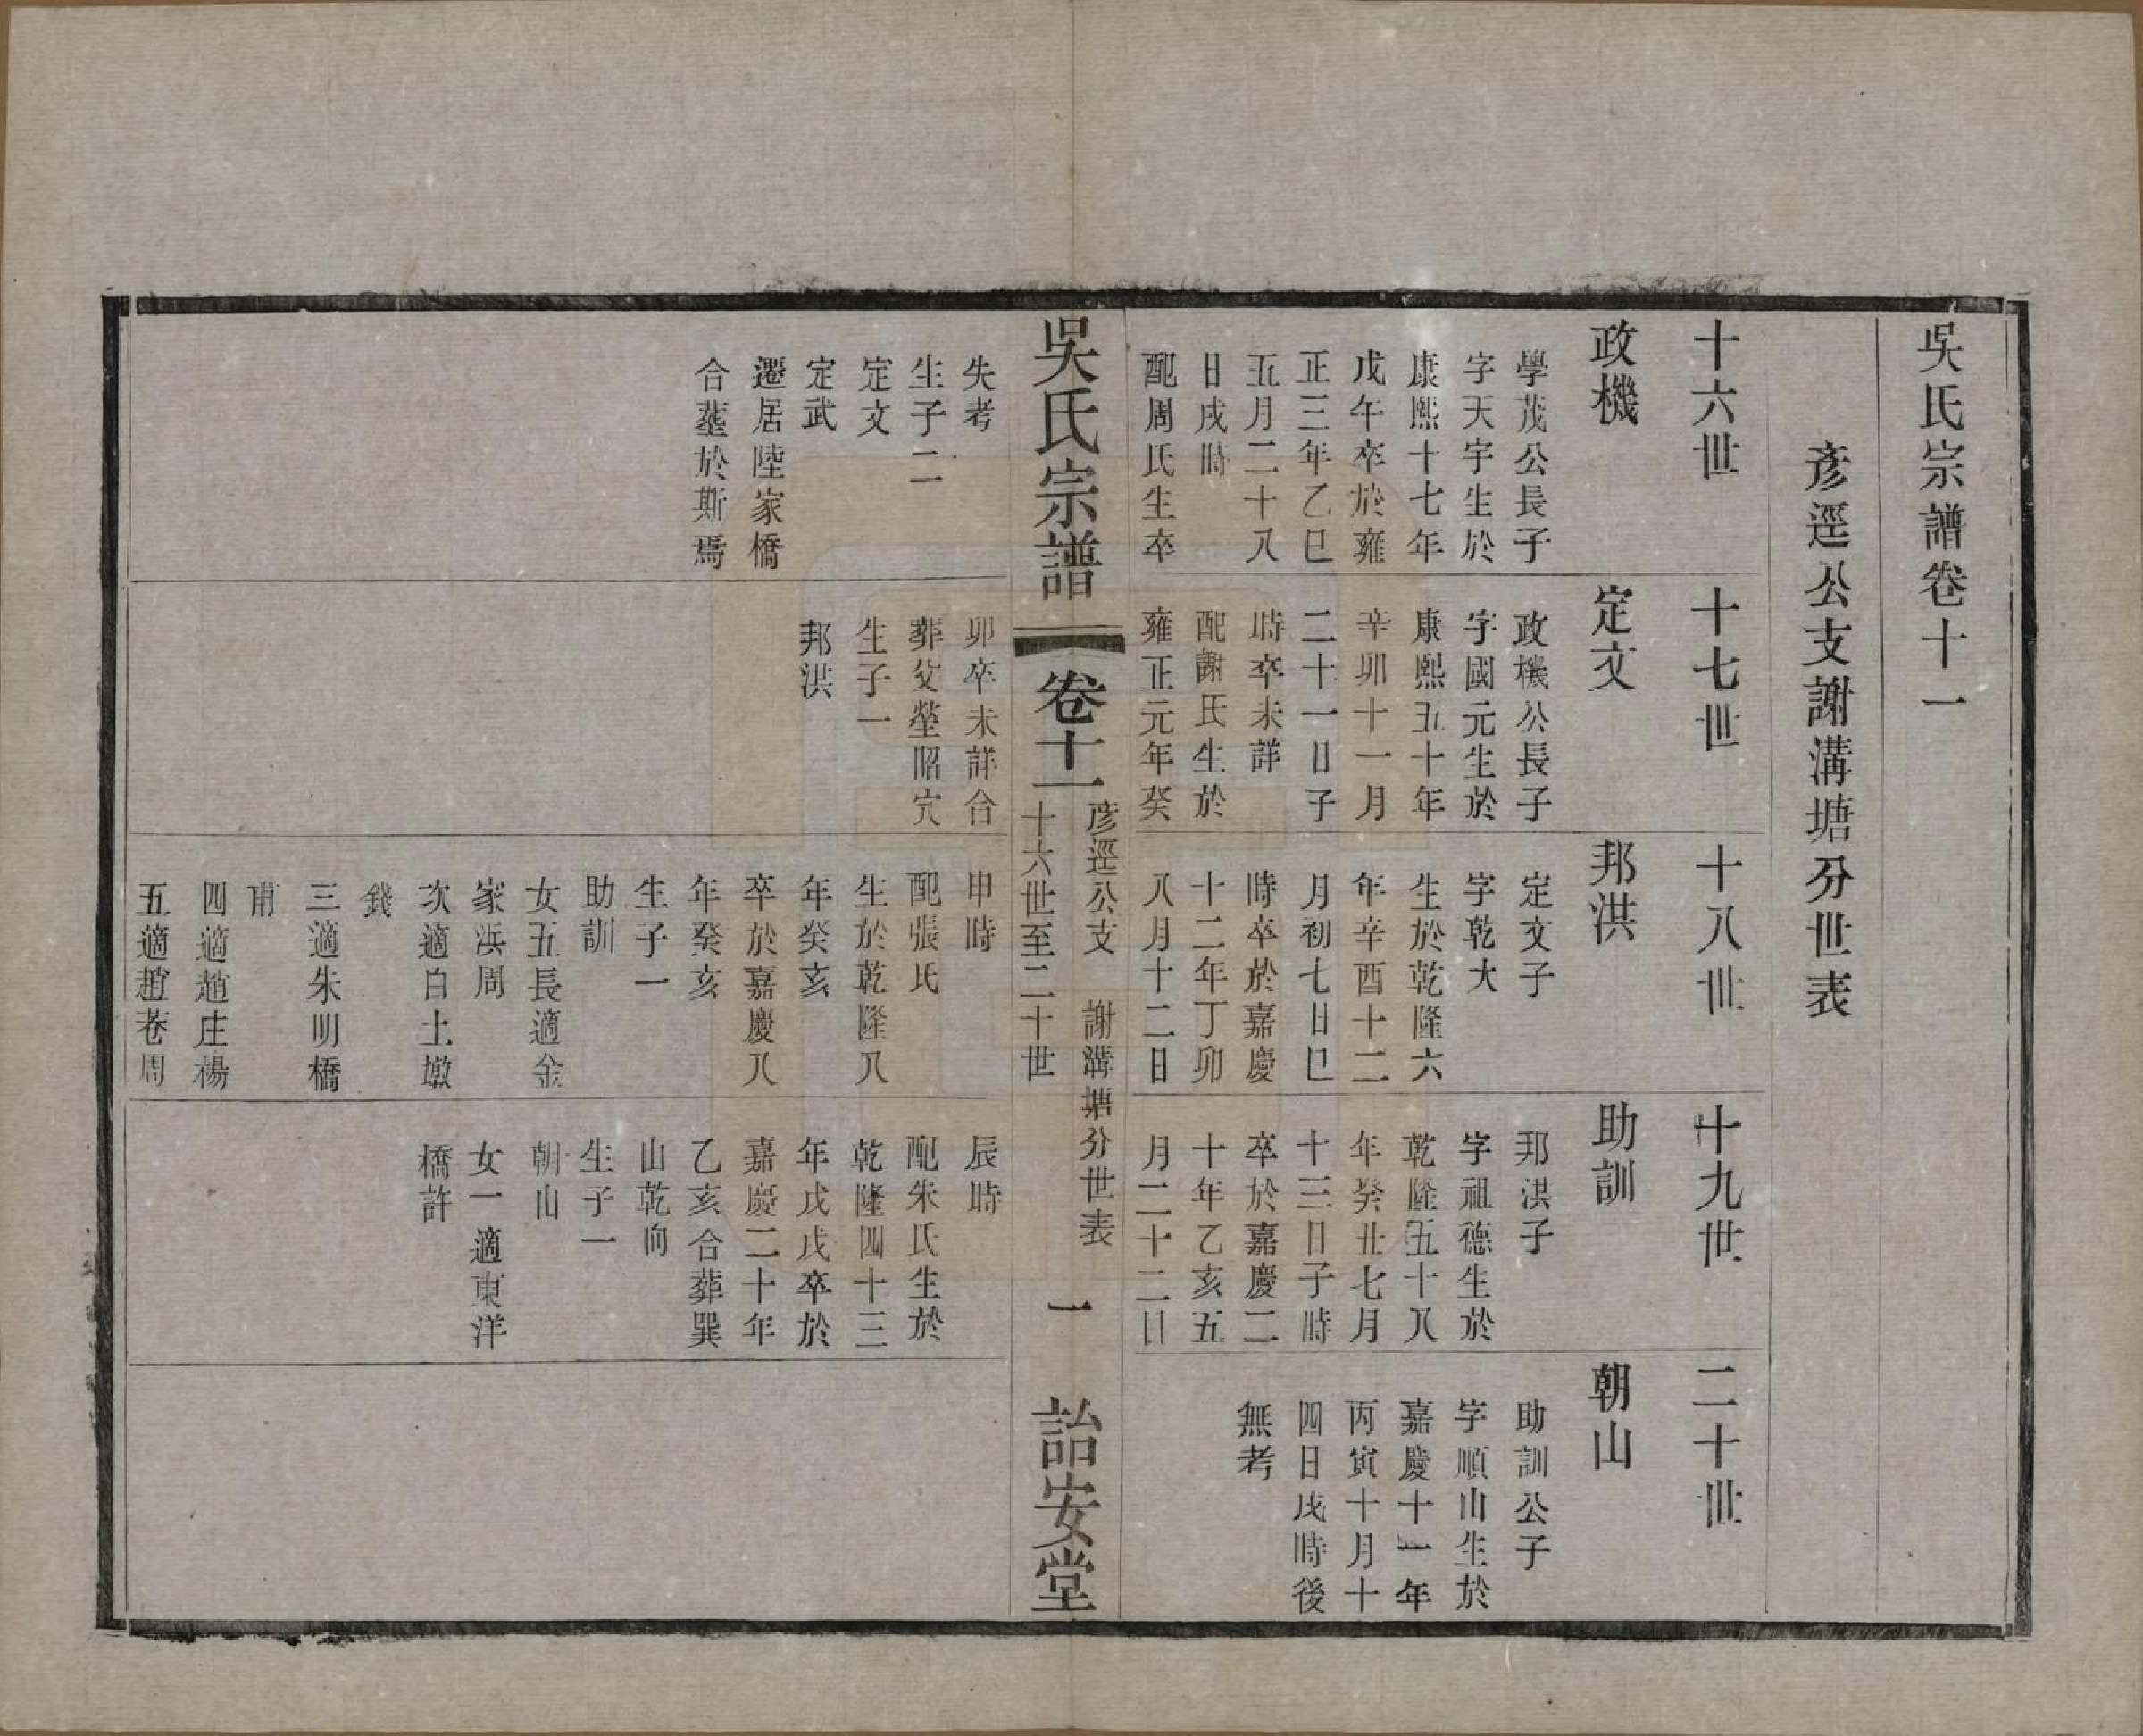 吳氏宗譜卷十一
彥逕公支謝溝塘分世表
十六世
政機
學茂公長子
字天宇生於
康熙十七年
戊午卒於雍
正三年乙巳
五月二十八
日戌時
配周氏生卒
失考
生子二
定文
定武
遷居陸家橋
合塟於斯焉
十七世
定文
政機公長子
字國元生於
康熙五十年
辛卯十一月
二十一日子
時卒未詳
配謝氏生於
雍正元年癸
卯卒未詳合
葬父塋昭穴
生子一
邦洪
十八世
邦洪
定文子
字乾大
生於乾隆六
年辛酉十二
月初七日巳
時卒於嘉慶
十二年丁卯
八月十二日
申時
配張氏
生於乾隆八
年癸亥
卒於嘉慶八
年癸亥
生子一
助訓
女五長適金
家浜周
次適白土墩
錢
三適朱明橋
甫
四適趙庄楊
五適趙巷周
十九世
助訓
邦洪子
字祖德生於
乾隆五十八
年癸丑七月
十三日子時
卒於嘉慶二
十年乙亥五
月二十二日
辰時
配朱氏生於
乾隆四十三
年戊戌卒於
嘉慶二十年
乙亥合葬巽
山乾向
生子一
朝山
女一適東洋
橋許
二十世
朝山
助訓公子
字順山生於
嘉慶十一年
丙寅十月十
四日戌時後
無考
吳氏宗譜
卷十一
彥逕公支 謝溝塘分世表
十六世至二十世
一
詒安堂